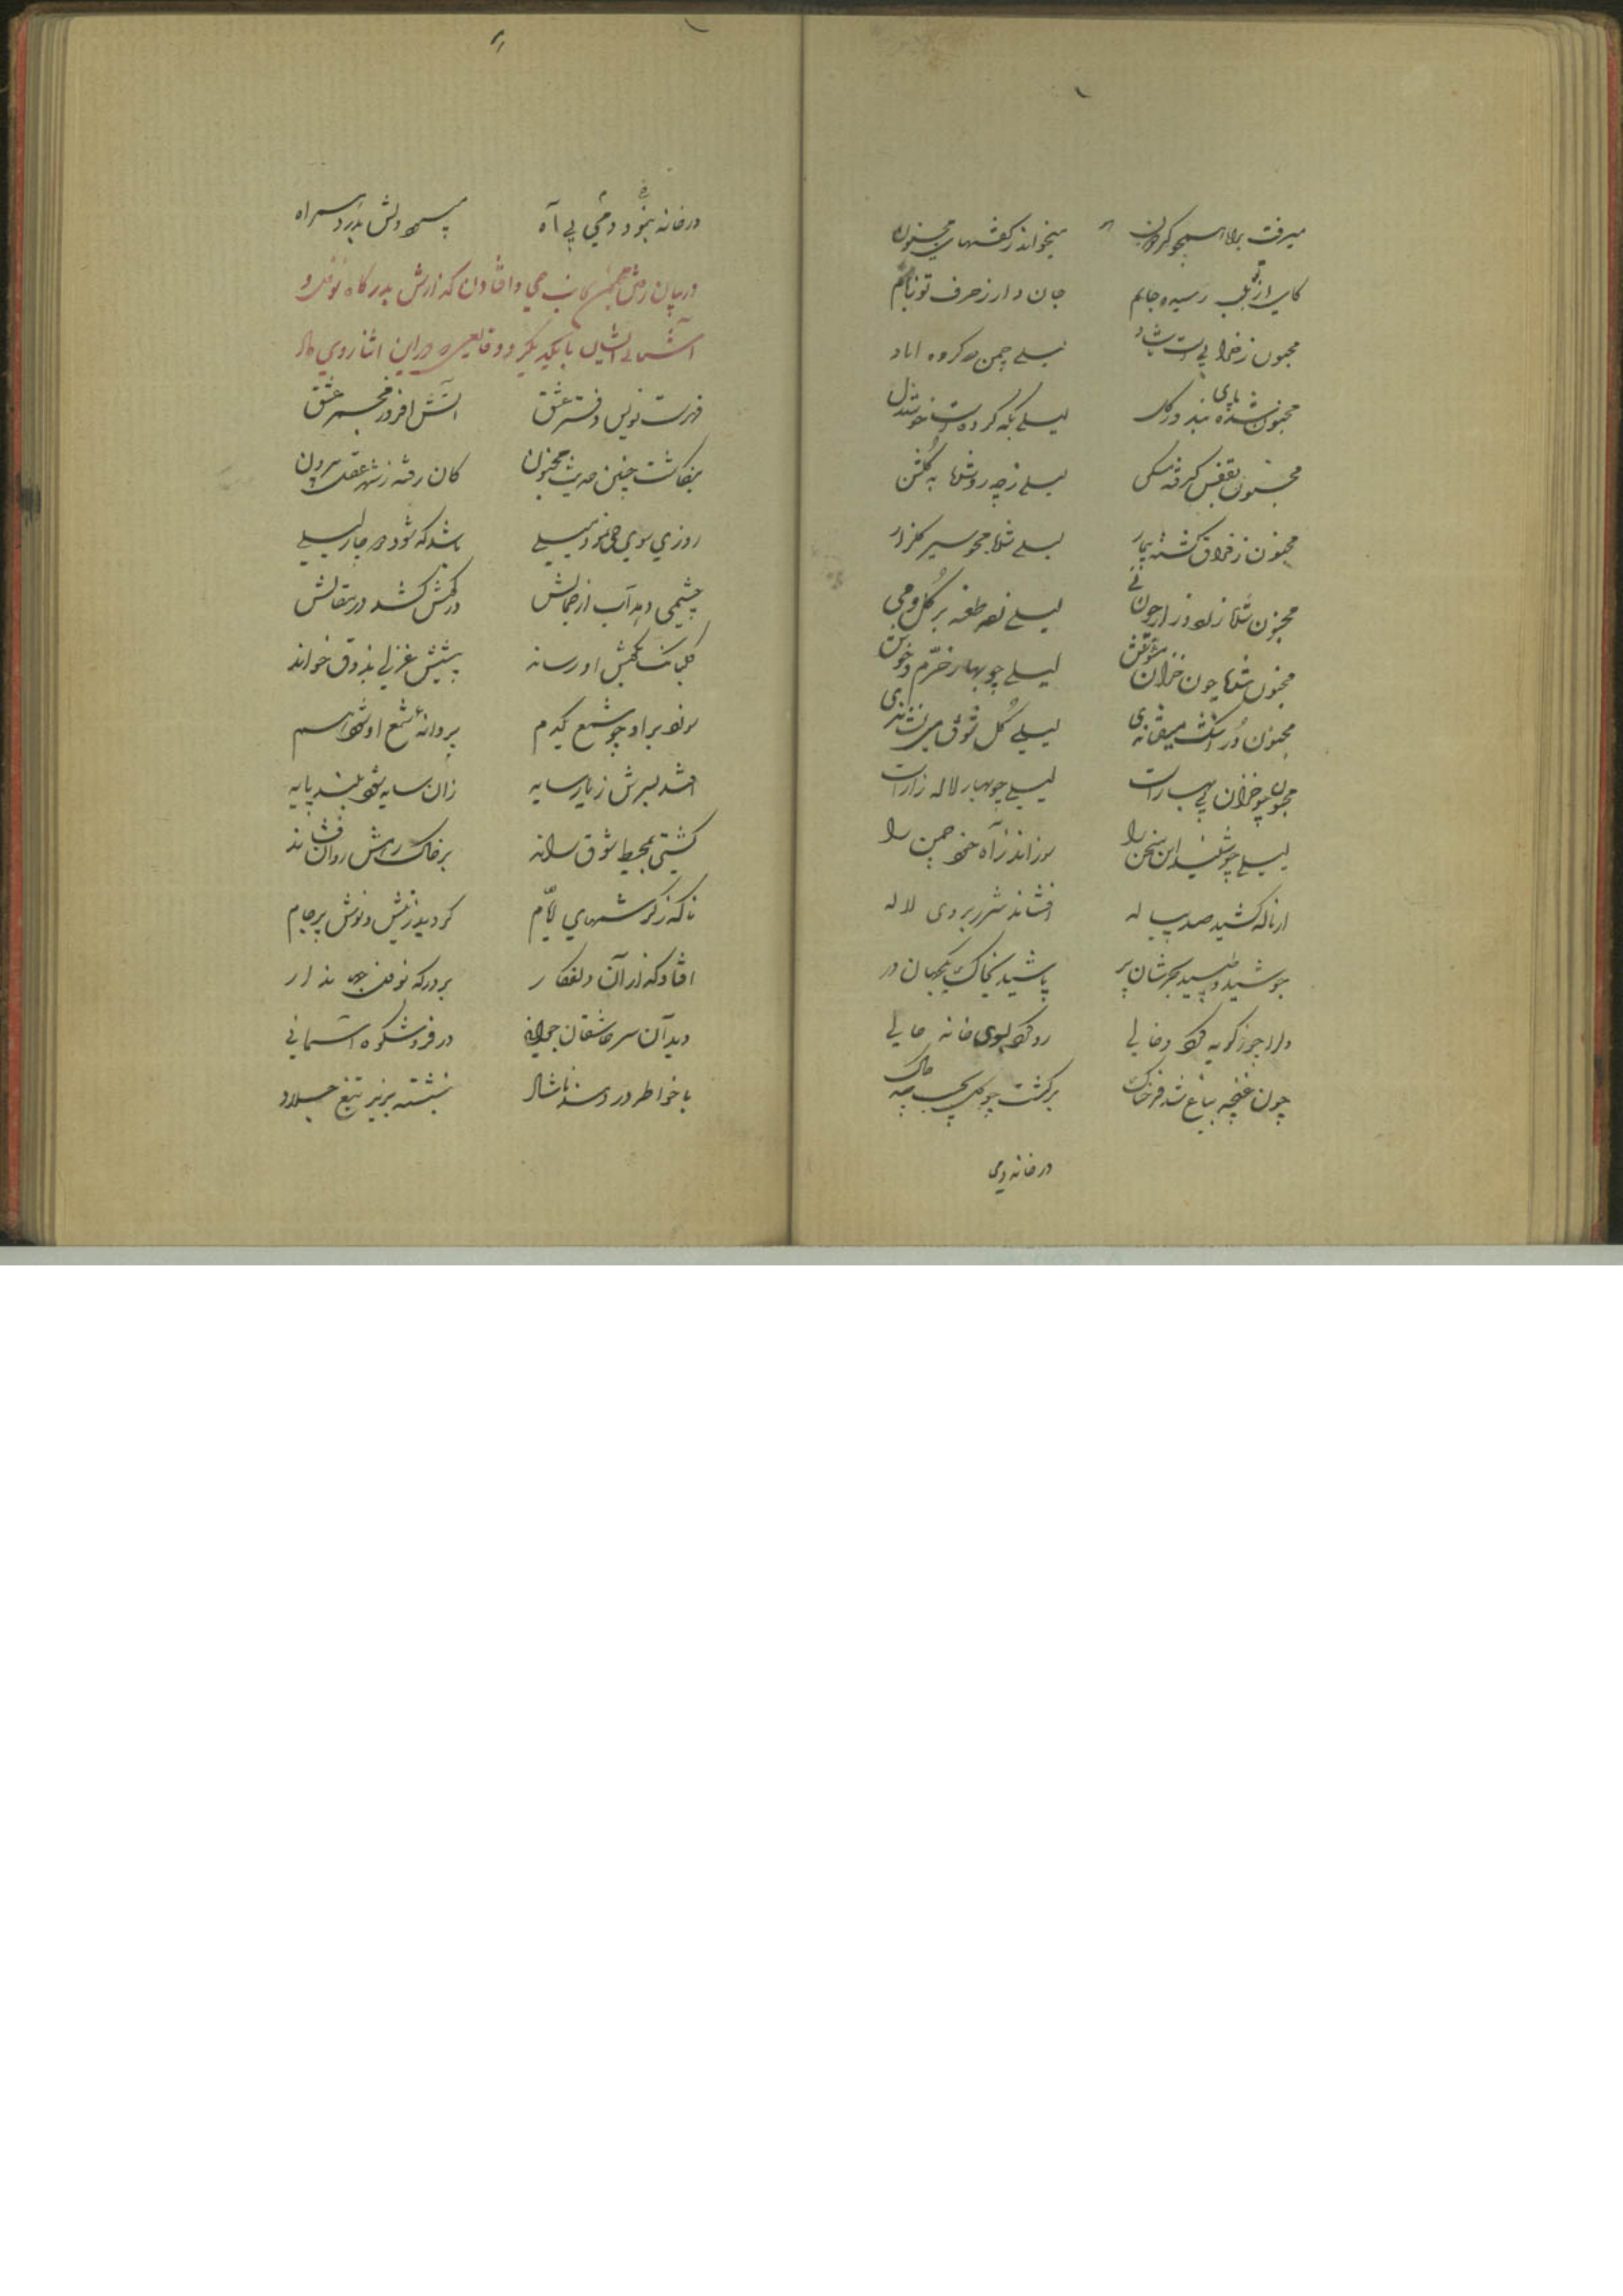 میرفت براه
میخواند ز گفتهای مجنون
کای از تو بلب رسیده جانم
جان دارد ز حرف تو زبانم
مجنون ز خرابی است شاد
لیلی چمن کرده اباد
مجنون شده پای بند در گل
لیلی تکیه کرده است خوشدل
مجنون بقفس گرفته مسکن
لیلی زچه رو شده به گلشن
مجنون ز فراق گشته بیمار
لیلی شده محو سیر گلزار
مجنون شده زار زار چون نی
لیلی زده طعنه بر گل و می
مجنون شده چون خزان مشوش
لیلی چو بهار خرّم و خوش
مجنون دُر اشک میفشاندی
لیلی گل شوق می نشاندی
مجنون چو خزان بی بهارست
لیلی چو بهار لاله زارست
لیلی چو شنید این سخن را
سوزاند ز آه خود چمن را
از ناله کشید صد پیاله
افشاند شرر بروی لاله
جوشید و طپید بحرشان پر
پاشید بخاک یکجهان در
دلرا چو ز گویه کرد خالی
رو کرد بسوی خانه حالی
چون غنچه بباغ شد فرحناک
برگشت چو گل بجیب چاک
در خانه دمی
در خانه نبود دمی بی آه
پیوسته دلش پدرد همراه
در بیان رفتن مجنون بجانب حی و افتادن گذارش بدرگاه نوفل و
آشنائی ایشان با یکدیگر و وقایعی که در این اثنا روی داد
فهرست نویس دفتر عشق
آتش افروز مجمر عشق
بنگاشت چنین حدیث مجنون
کان رفته ز شهر عقل بیرون
روزی بسوی حی نمود میلی
باشد که شود دچار لیلی
چشمی دهد آب از جمالش
در گوش کشد در مقالش
گلبانگ بگوش او رساند
پیشش غزلی بذوق خواند
سوزد بر او چو شمع یکدم
پروانهٔ شمع او شود هم
افتد بسرش ز یار سایه
زان سایه شود بلند پایه
کشتی بمحیط شوق راند
بر خاک رهش روان فشاند
ناگه ز گردشهای ایّام
گردید ز نیش و نوش پر جام
افتاد گذار آن دلفکار
بر درگه نوفل جهاندار
دید آن سر عاشقان جوانی
در فر و شکوه آسمانی
با خواطر درد و سینه ناشاد
بنشسته بزیر تیغ جلاد